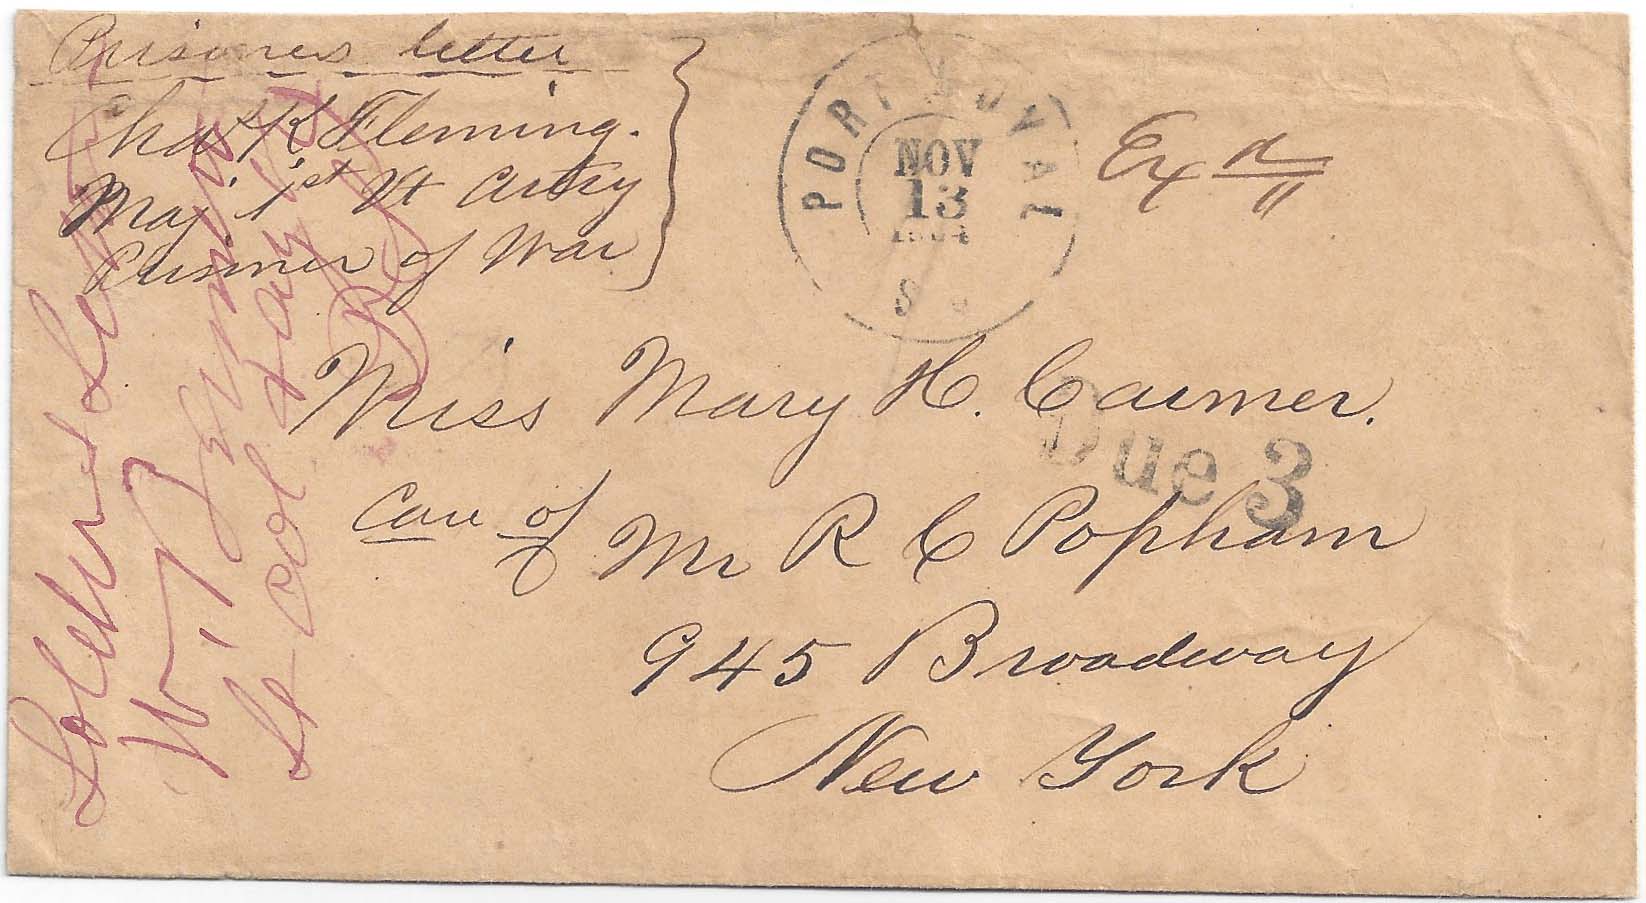 Prisoners letter
Chas K Fleming.
Maj 1st Vt Artry
Prisoner of War
PORT ROYAL
NOV
13
1864
S C
Exd
Miss Mary H. Caimer.
Due 3
Care of Mr R C Popham
945 Broadway
New York
Soldiers Letter
Lt Col